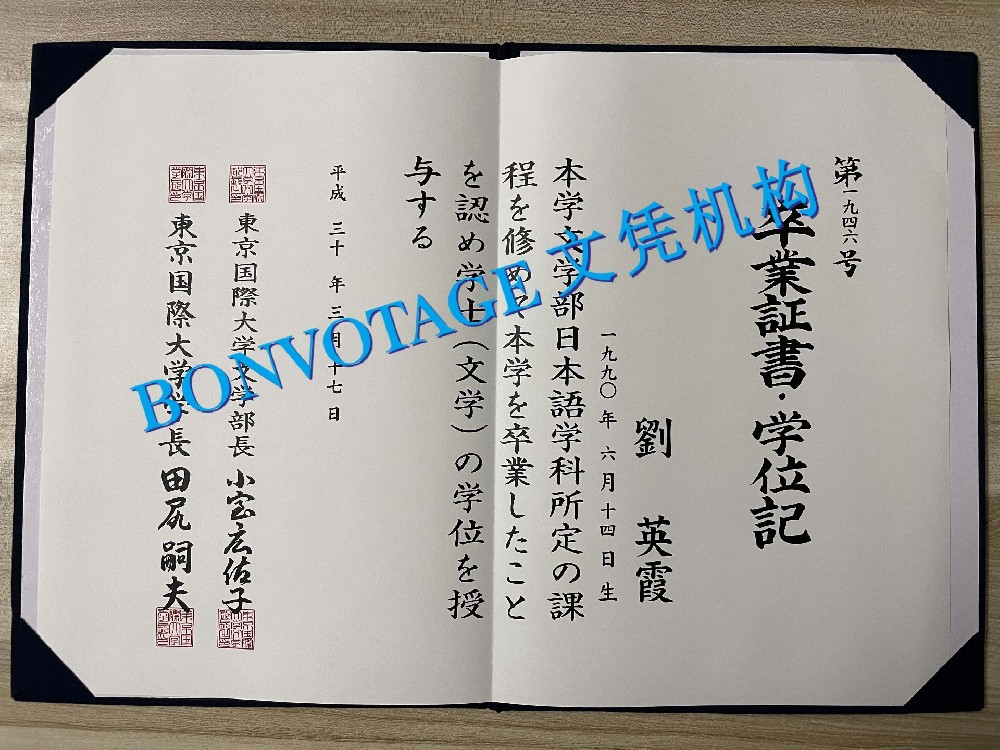 第一九四六号
卒業証書・学位記
劉 英霞
一九九〇年 六月十四日生
本学文学部日本語学科所定の課
程を修めて本学を卒業したこと
を認め学士(文学)の学位を授
与する
平成 三十 年 三月 十七 日
東京国際大学文学部長 小宮広佑子
東京国際大学学長 田尻嗣夫
BONVOTAGE文凭机构